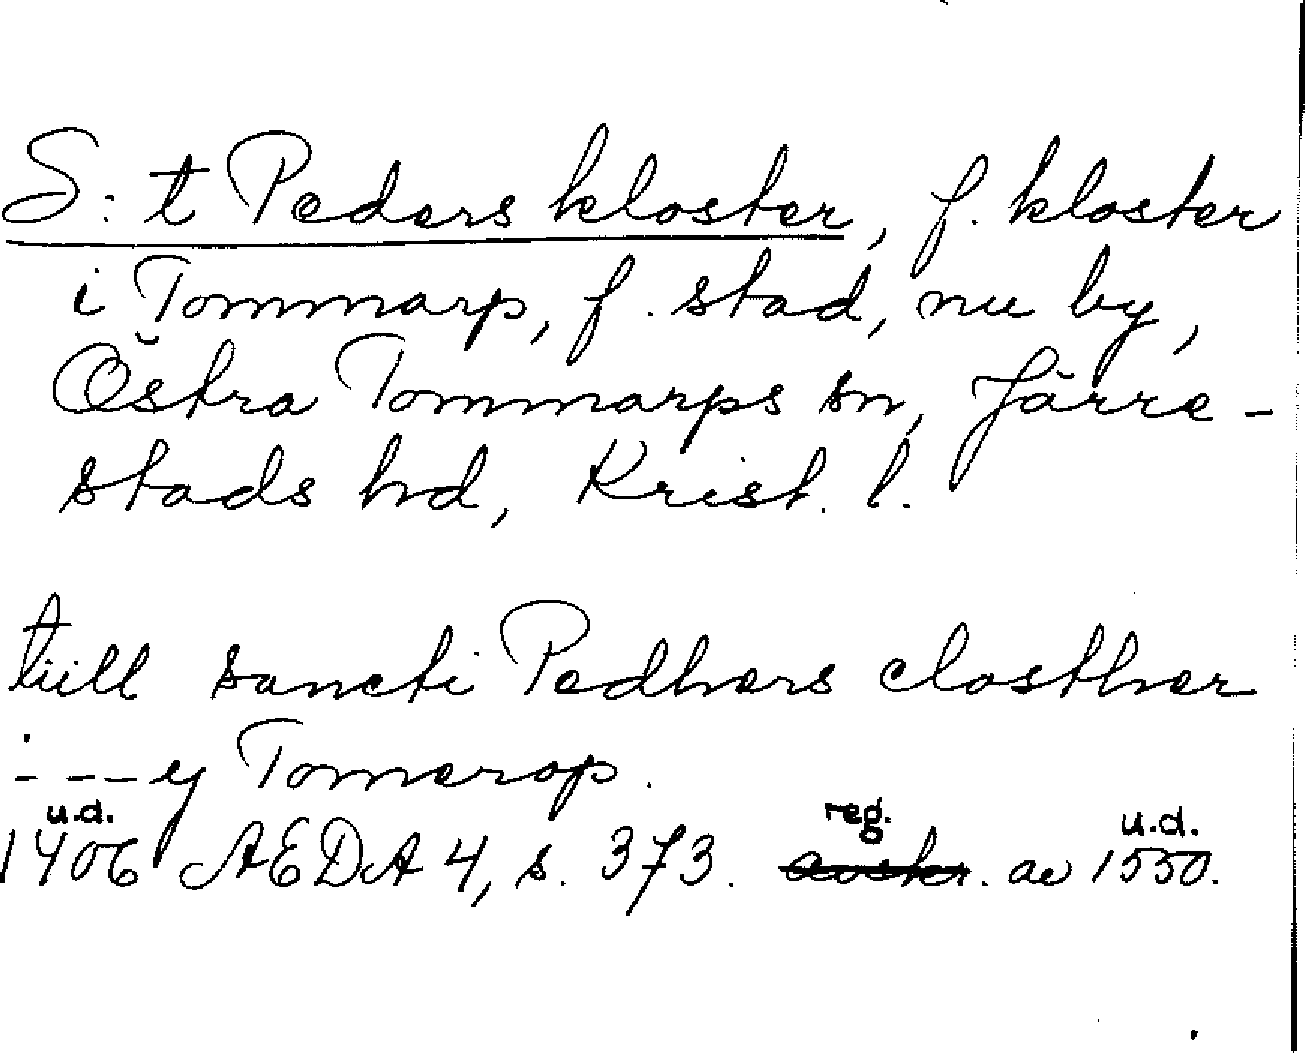 S:t Peders kloster, f. kloster
i Tommarp, f. stad, nu by,
Östra Tommarps sn, Järre-
stads hd, Krist. l.
tiill sancti Pedhers closther
- --- y Tomerop.
u.d. reg. u.d.
1406 AEDA 4, s. 373. avskr. av 1550.